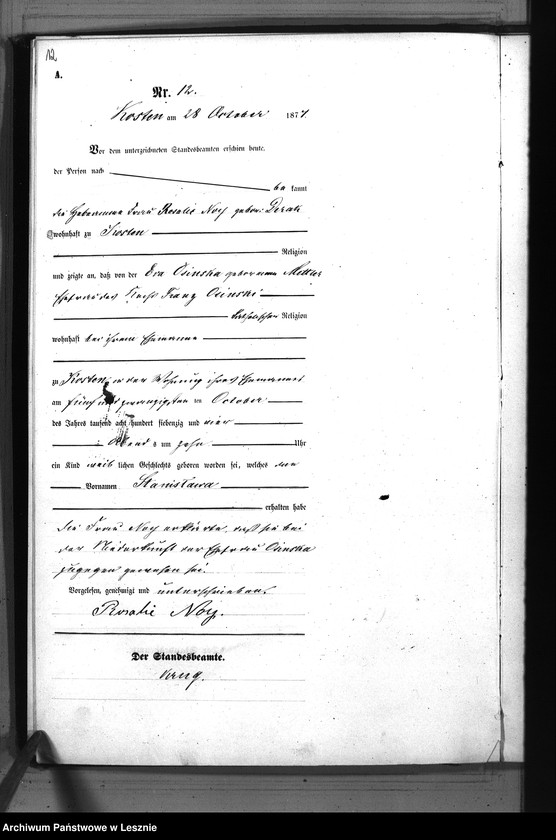 12
A.
Nr. 12.
Kosten am 28 October 1874.
Vor dem unterzeichneten Standesbeamten erschien heute,
der Person nach
be kannt
die Hebamme Frau Rosalie Noy geboren
wohnhaft zu Kosten
Religion
und zeigte an, daß von der Eva Osinska geborenen
Ehefrau des Franz Osinski
katholischer Religion
wohnhaft bei ihrem Ehemanne
zu Kosten in der Wohnung ihres Ehemannes
am fünf und zwanzigsten ten October
des Jahres tausend acht hundert siebenzig und vier
Abend s um zehn Uhr
ein Kind weib lichen Geschlechts geboren worden sei, welches den
Vornamen Stanislawa
erhalten habe
Die Frau Noy erklärte, daß sie bei
der Niederkunft der Ehefrau Osinska
zugegen gewesen sei.
Vorgelesen, genehmigt und unterschrieben
Rosalie Noy.
Der Standesbeamte.
Archiwum Państwowe w Lesznie